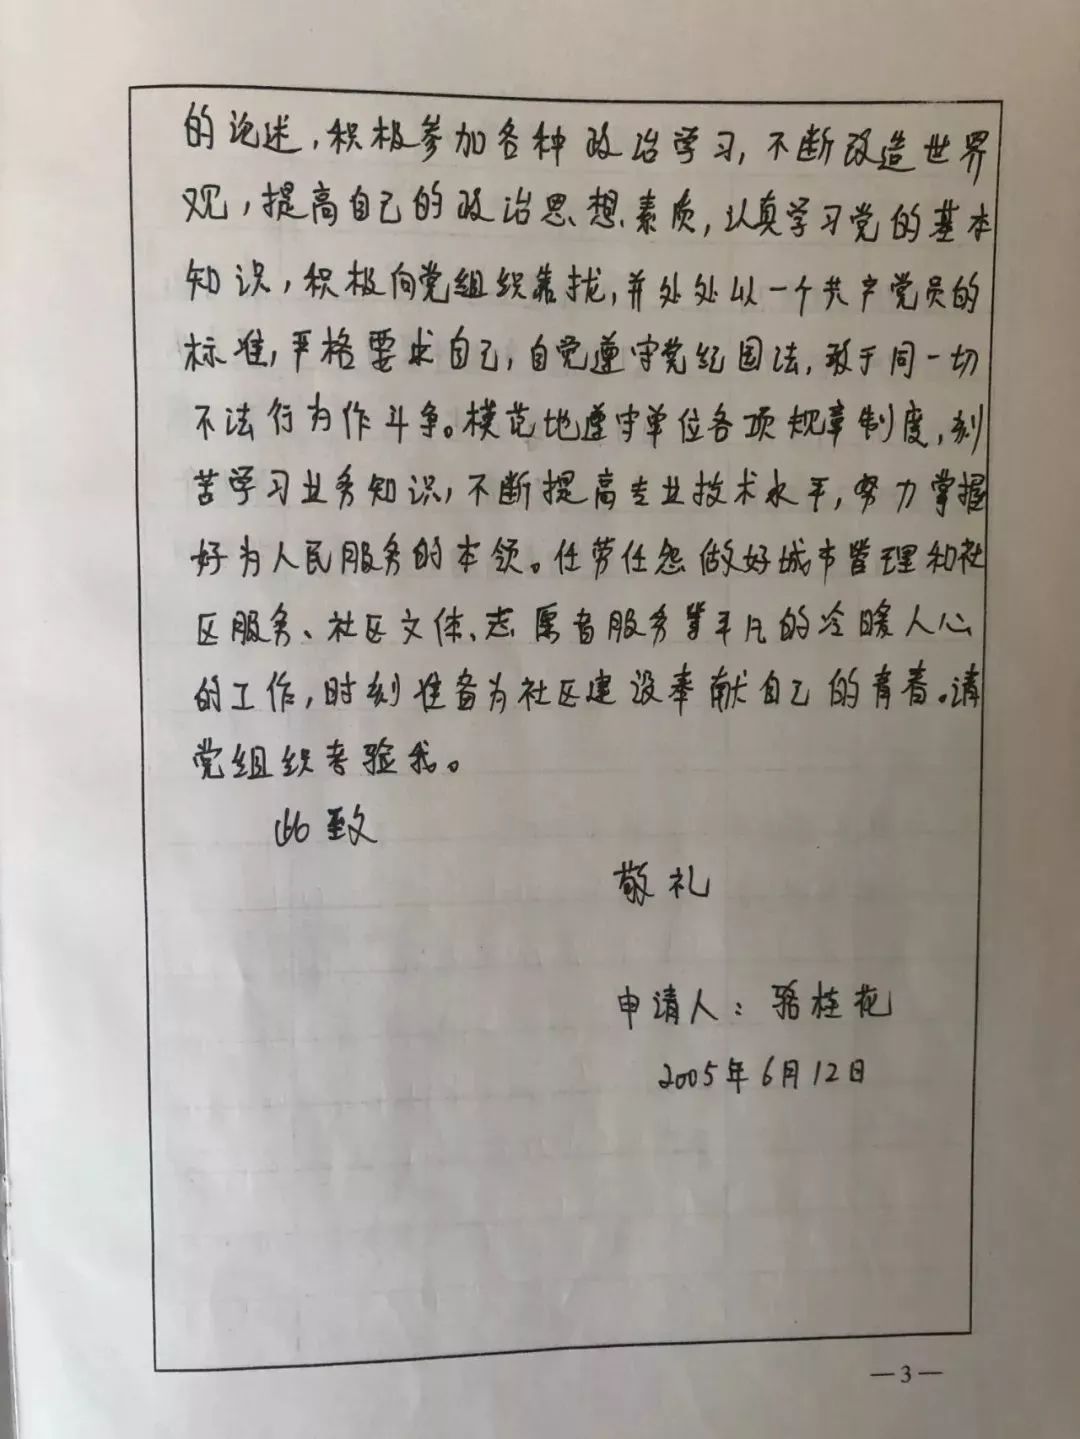 的论述,积极参加各种政治学习,不断改造世界
观,提高自己的政治思想素质,认真学习党的基本
知识,积极向党组织靠拢,并处处以一个共产党员的
标准,严格要求自己,自觉遵守党纪国法,敢于同一切
不法行为作斗争。模范地遵守单位各项规章制度,刻
苦学习业务知识,不断提高专业技术水平,努力掌握
好为人民服务的本领。任劳任怨做好城市管理和社
区服务、社区文体、志愿者服务等平凡的冷暖人心
的工作,时刻准备为社区建设奉献自己的青春。请
党组织考验我。
此致
敬礼
申请人:骆桂花
2005年6月12日
—3—